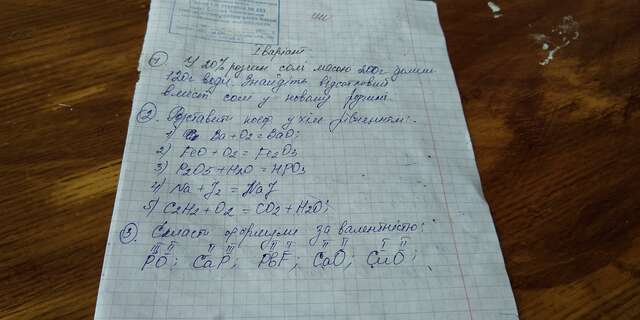 I варіант
1 У 20% розчин солі масою 200г долили
120г води. Знайдіть відсотковий
вміст солі у новому розчині.
2. Розставити коеф. у хім. рівняннях:
1) Ba + O2 = BaO;
2) FeO + O2 = Fe2O3
3) P2O5 + H2O = HPO3
4) Na + J2 = NaJ
5) C2H2 + O2 = CO2 + H2O;
3. Скласти формули за валентністю:
III II II III II II II I II
PO; CaP; PbF; CaO; CuO;